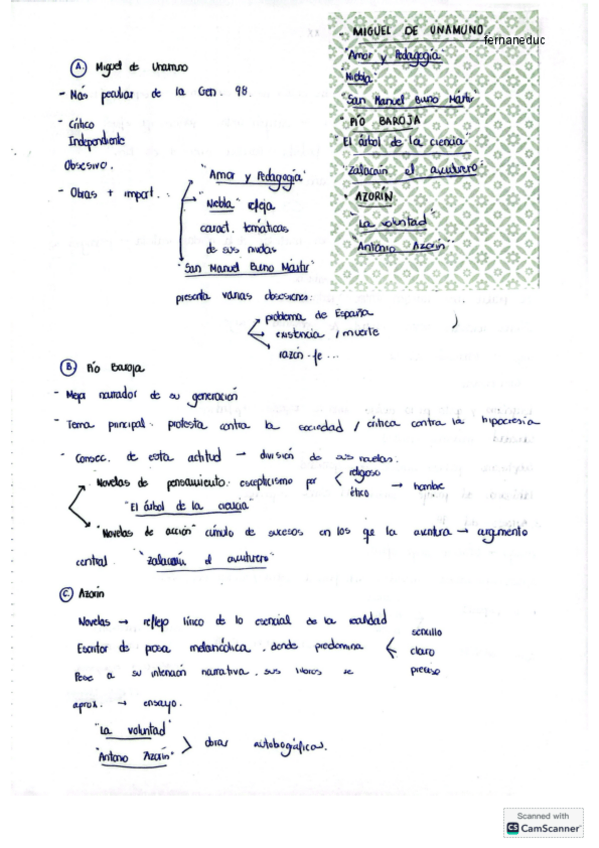 - MIGUEL DE UNAMUNO.
fernaneduc
"Amor y Pedagogía"
"Niebla"
"San Manuel Bueno Mártir"
• PÍO BAROJA
"El árbol de la ciencia"
"Zalacaín el aventurero"
• AZORÍN
"La voluntad"
"Antonio Azorín"
A. Miguel de Unamuno
- Más peculiar de la Gen. 98.
- Crítico
Independiente
Obsesivo.
- Obras + import. :
"Amor y Pedagogía"
"Niebla" refleja
caract. temáticas
de sus nivolas
"San Manuel Bueno Mártir"
presenta varias obsesiones:
problema de España
existencia / muerte
razón-fe ...
B. Pío Baroja
- Mejor narrador de su generación
- Tema principal: protesta contra la sociedad / crítica contra la hipocresía
- Consec. de esta actitud → división de sus novelas:
Novelas de pensamiento: escepticismo por
religioso
ético
→ hombre
"El árbol de la ciencia"
"Novelas de acción" cúmulo de sucesos en los que la aventura → argumento
central. "Zalacaín el aventurero"
C. Azorín
Novelas → reflejo lírico de lo esencial de la realidad
Escritor de prosa melancólica, donde predomina
sencillo
claro
preciso
Pese a su intención narrativa, sus libros se
aprox. → ensayo.
"La voluntad"
"Antonio Azorín"
obras autobiográficas.
Scanned with
CS CamScanner